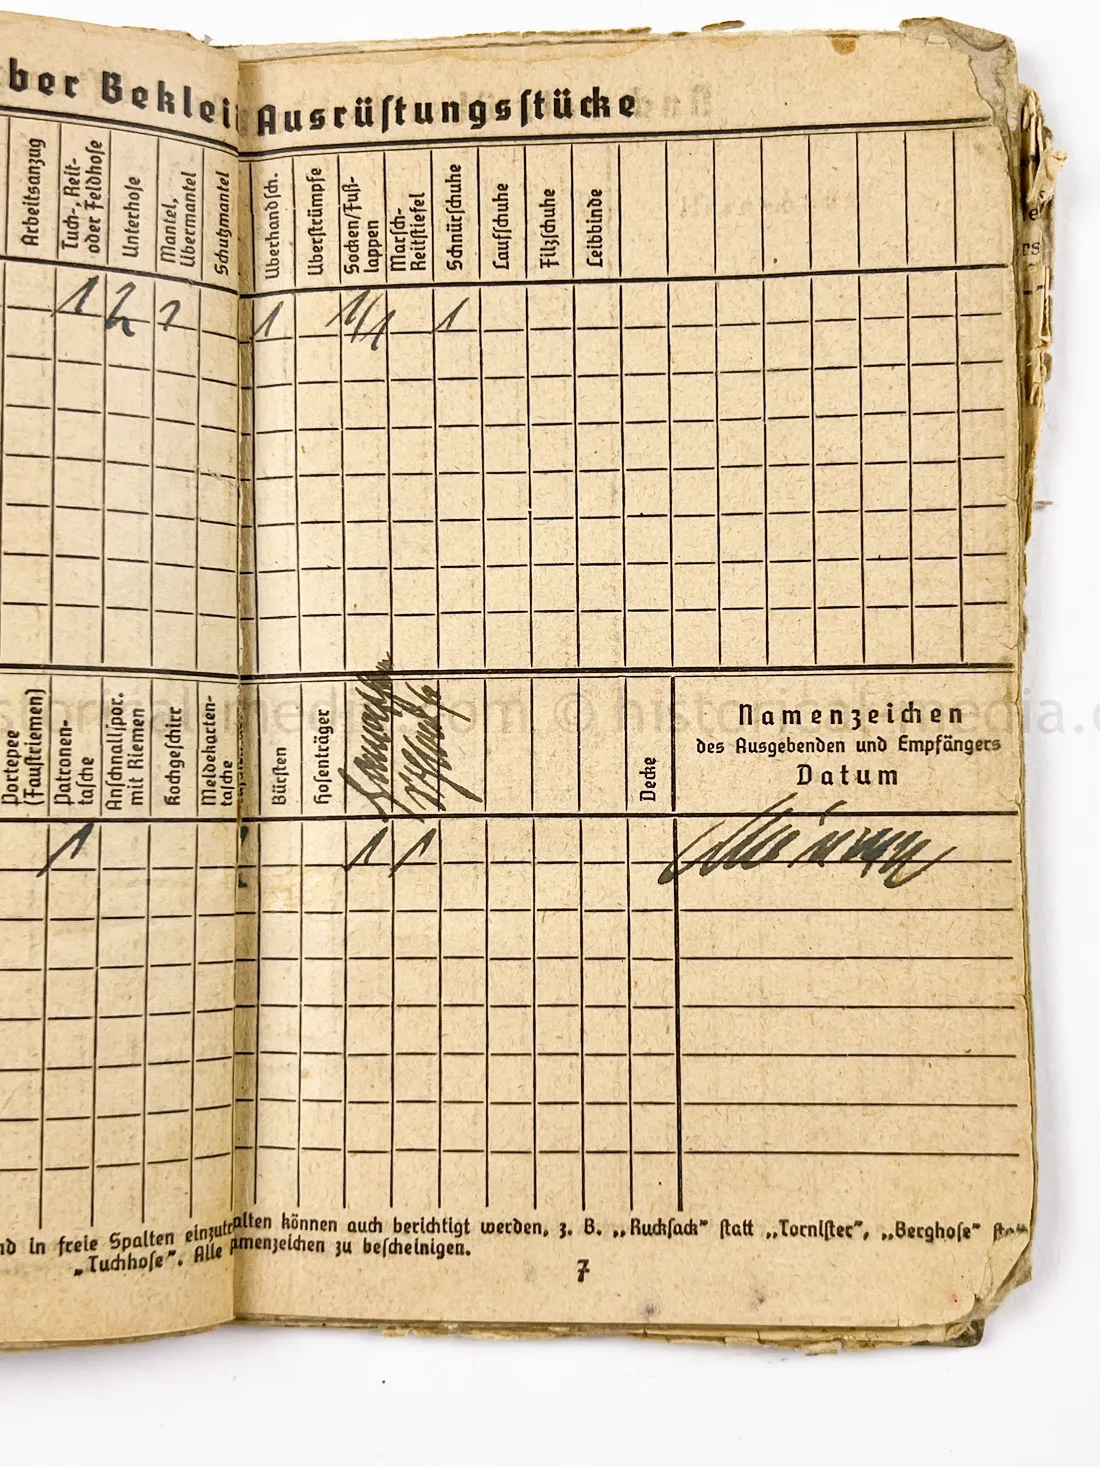 ber Beklei
Ausrüstungsstücke
Arbeitsanzug
Tuch-, Reit-
oder Feldhose
Unterhose
Mantel,
Übermantel
Schutzmantel
Überhandsch.
Überstrümpfe
Socken/Fuß-
lappen
Marsch-
Reitstiefel
Schnürschuhe
Laufschuhe
Filzschuhe
Leibbinde
1 2 1 1 1/1 1
Portepee
(Faustriemen)
Patronen-
tasche
Anschnallspor.
mit Riemen
Kochgeschirr
Meldekarten-
tasche
Bürsten
Hosenträger
Decke
Namenzeichen
des Ausgebenden und Empfängers
Datum
1 1 1
nd in freie Spalten einzutr
„Tuchhose". Alle
alten können auch berichtigt werden, z. B. „Rucksack" statt „Tornister", „Berghose" statt
amenzeichen zu bescheinigen.
7